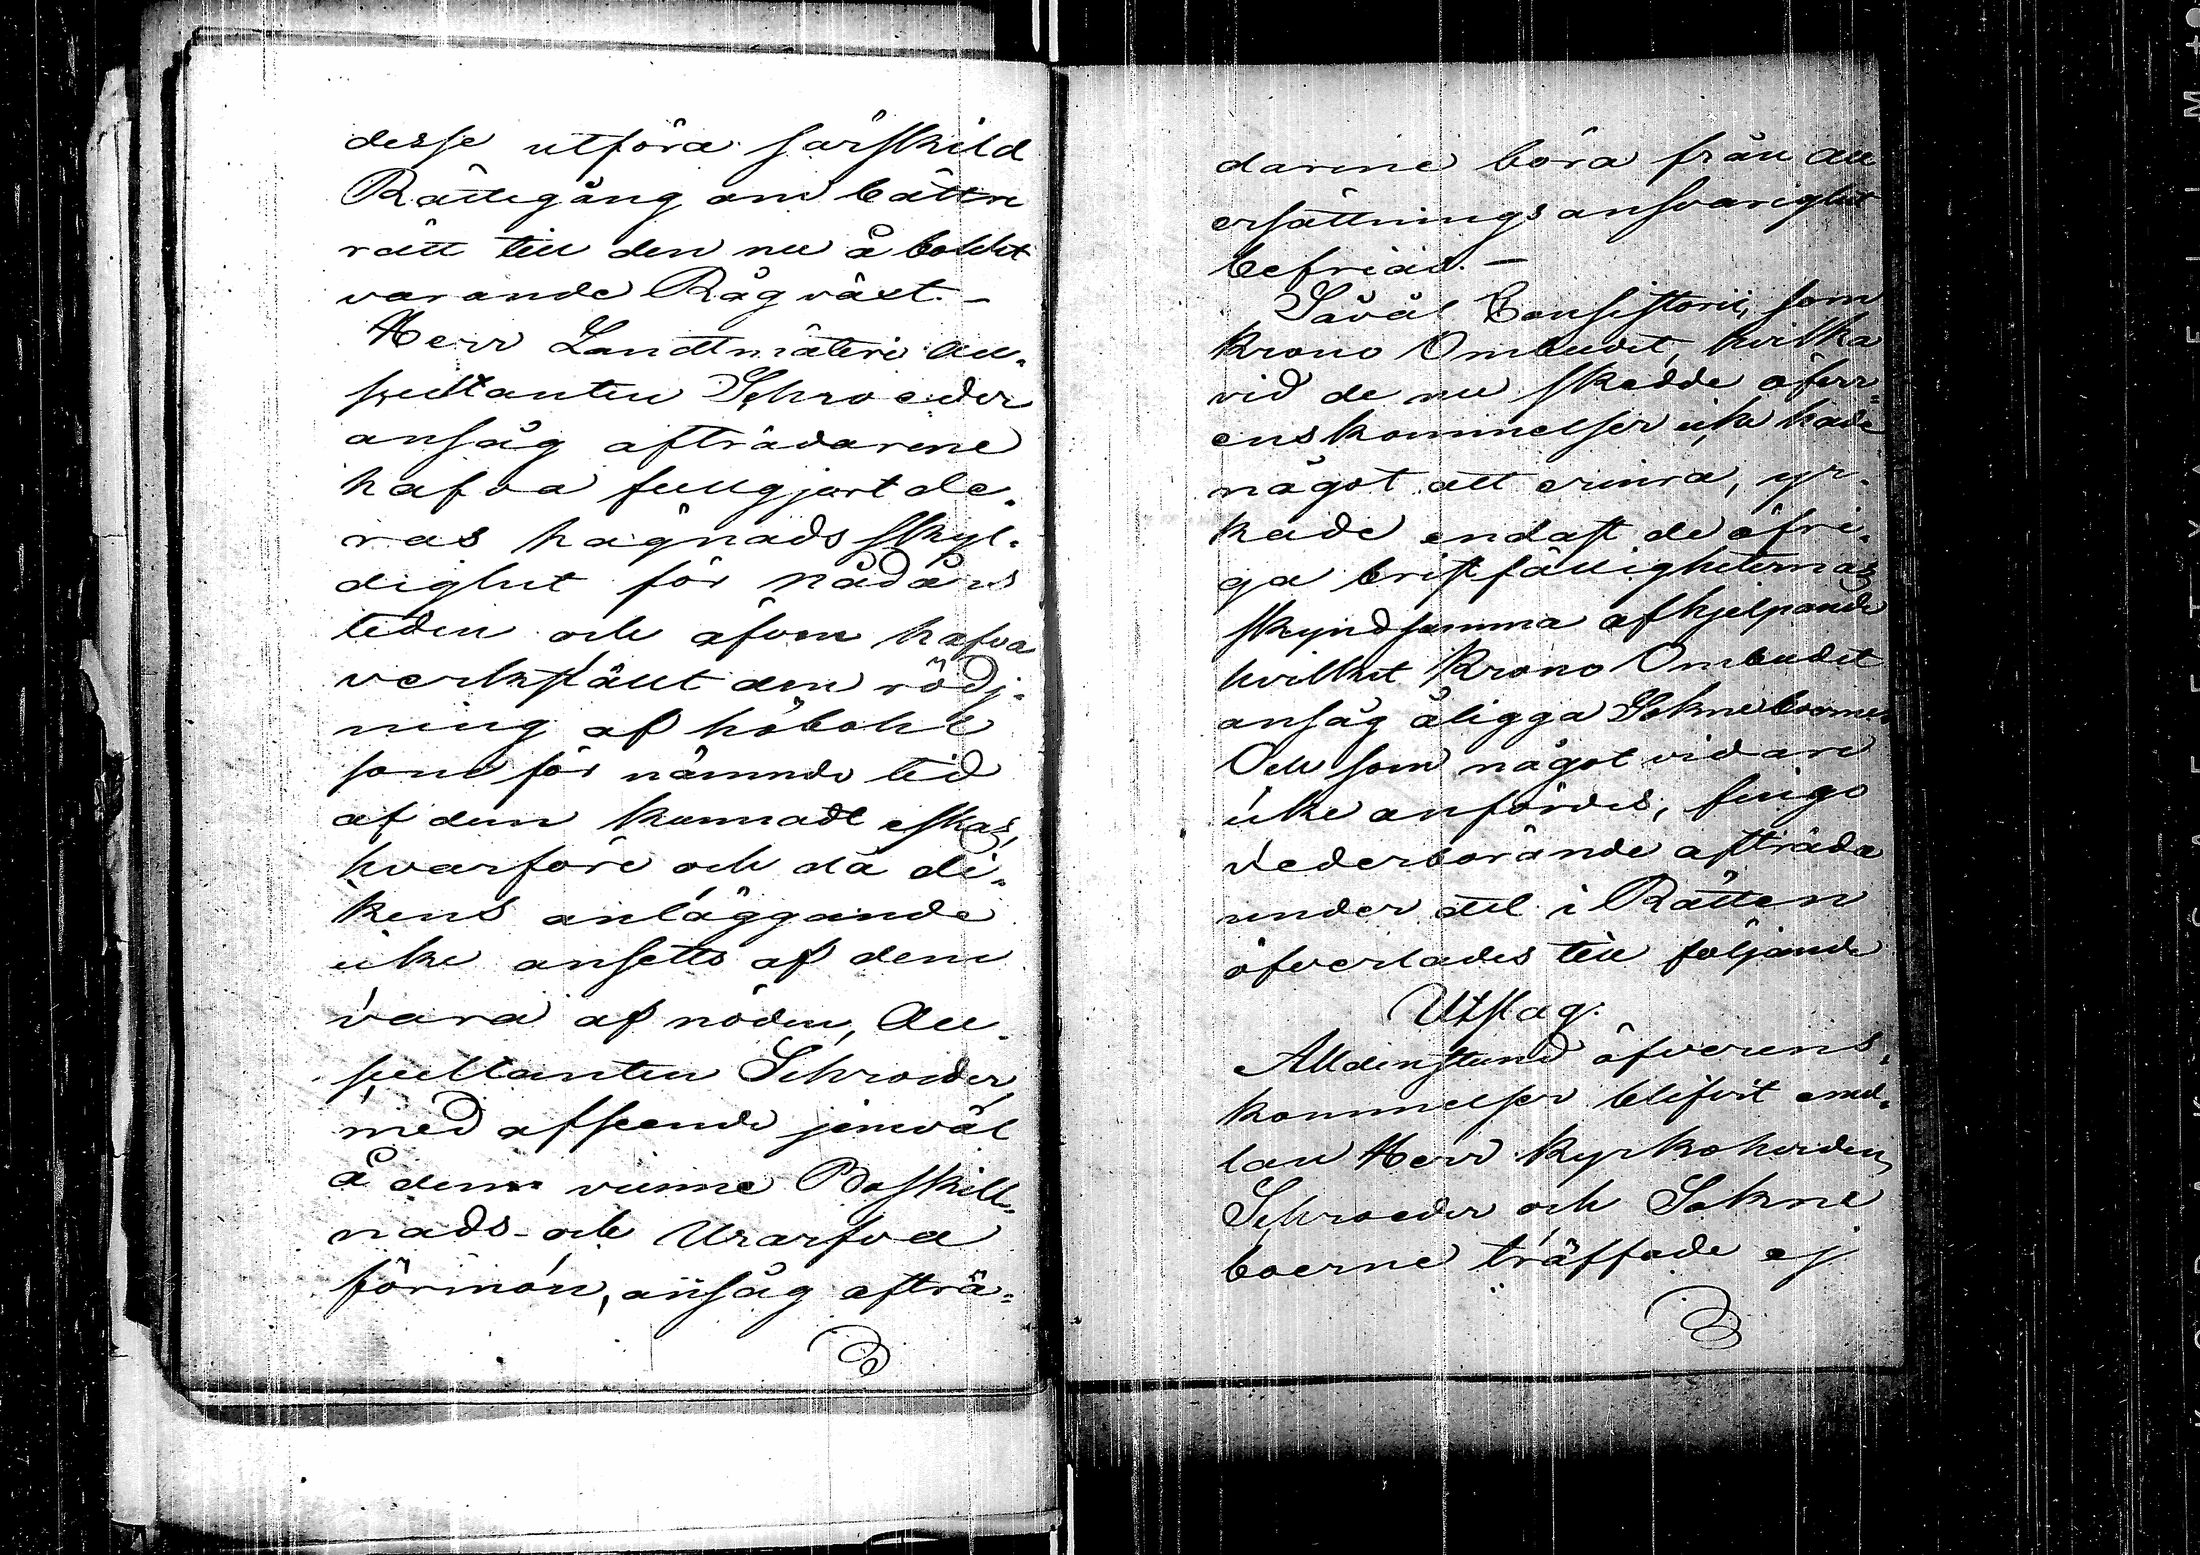 desse utföra särskild
Rättegång om bättre
rätt till den nu å bohlet
varande Rågväxt. -
Herr Landtmäteri Au-
scultanten Schroeder
ansåg afträdarene
hafva fullgjort de-
ras hägnads skyl-
dighet för nådårs
tiden och äfven hafva
verkstält den rödj-
ning af höbohl
som för nämnde tid
af dem kunnadt äskas,
hvarföre och då di-
kens anläggande
icke ansetts af dem
vara af nöden, Au-
scultanten Schroeder,
med afseende jemväl
å dem vunne Boskill-
nads- och Urarfva
förmon, ansåg afträ-
darene böra från all
ersättnings ansvarighet
befrias. -
Såväl Consistorii, som
Krono Ombudet, hvilka
vid de nu skedde öfver-
enskommelser icke hade
något att erinra, yr-
kade endast de öfri-
ga bristfälligheternas
skyndsamma afhjelpande
hvilket Krono Ombudet
ansåg åligga Sokneboerne
Och som något vidare
icke anfördes, fingo
vederbörande afträda
under det i Rätten
öfverlades till följande
Utslag.
Alldenstund öfverens-
kommelser blifvit emel-
lan Herr Kyrkoherden
Schroeder och Sokne
boerne träffade ej